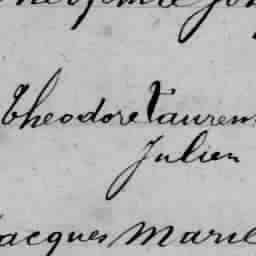 Theodore Lauren
Julien
Jacques Marie